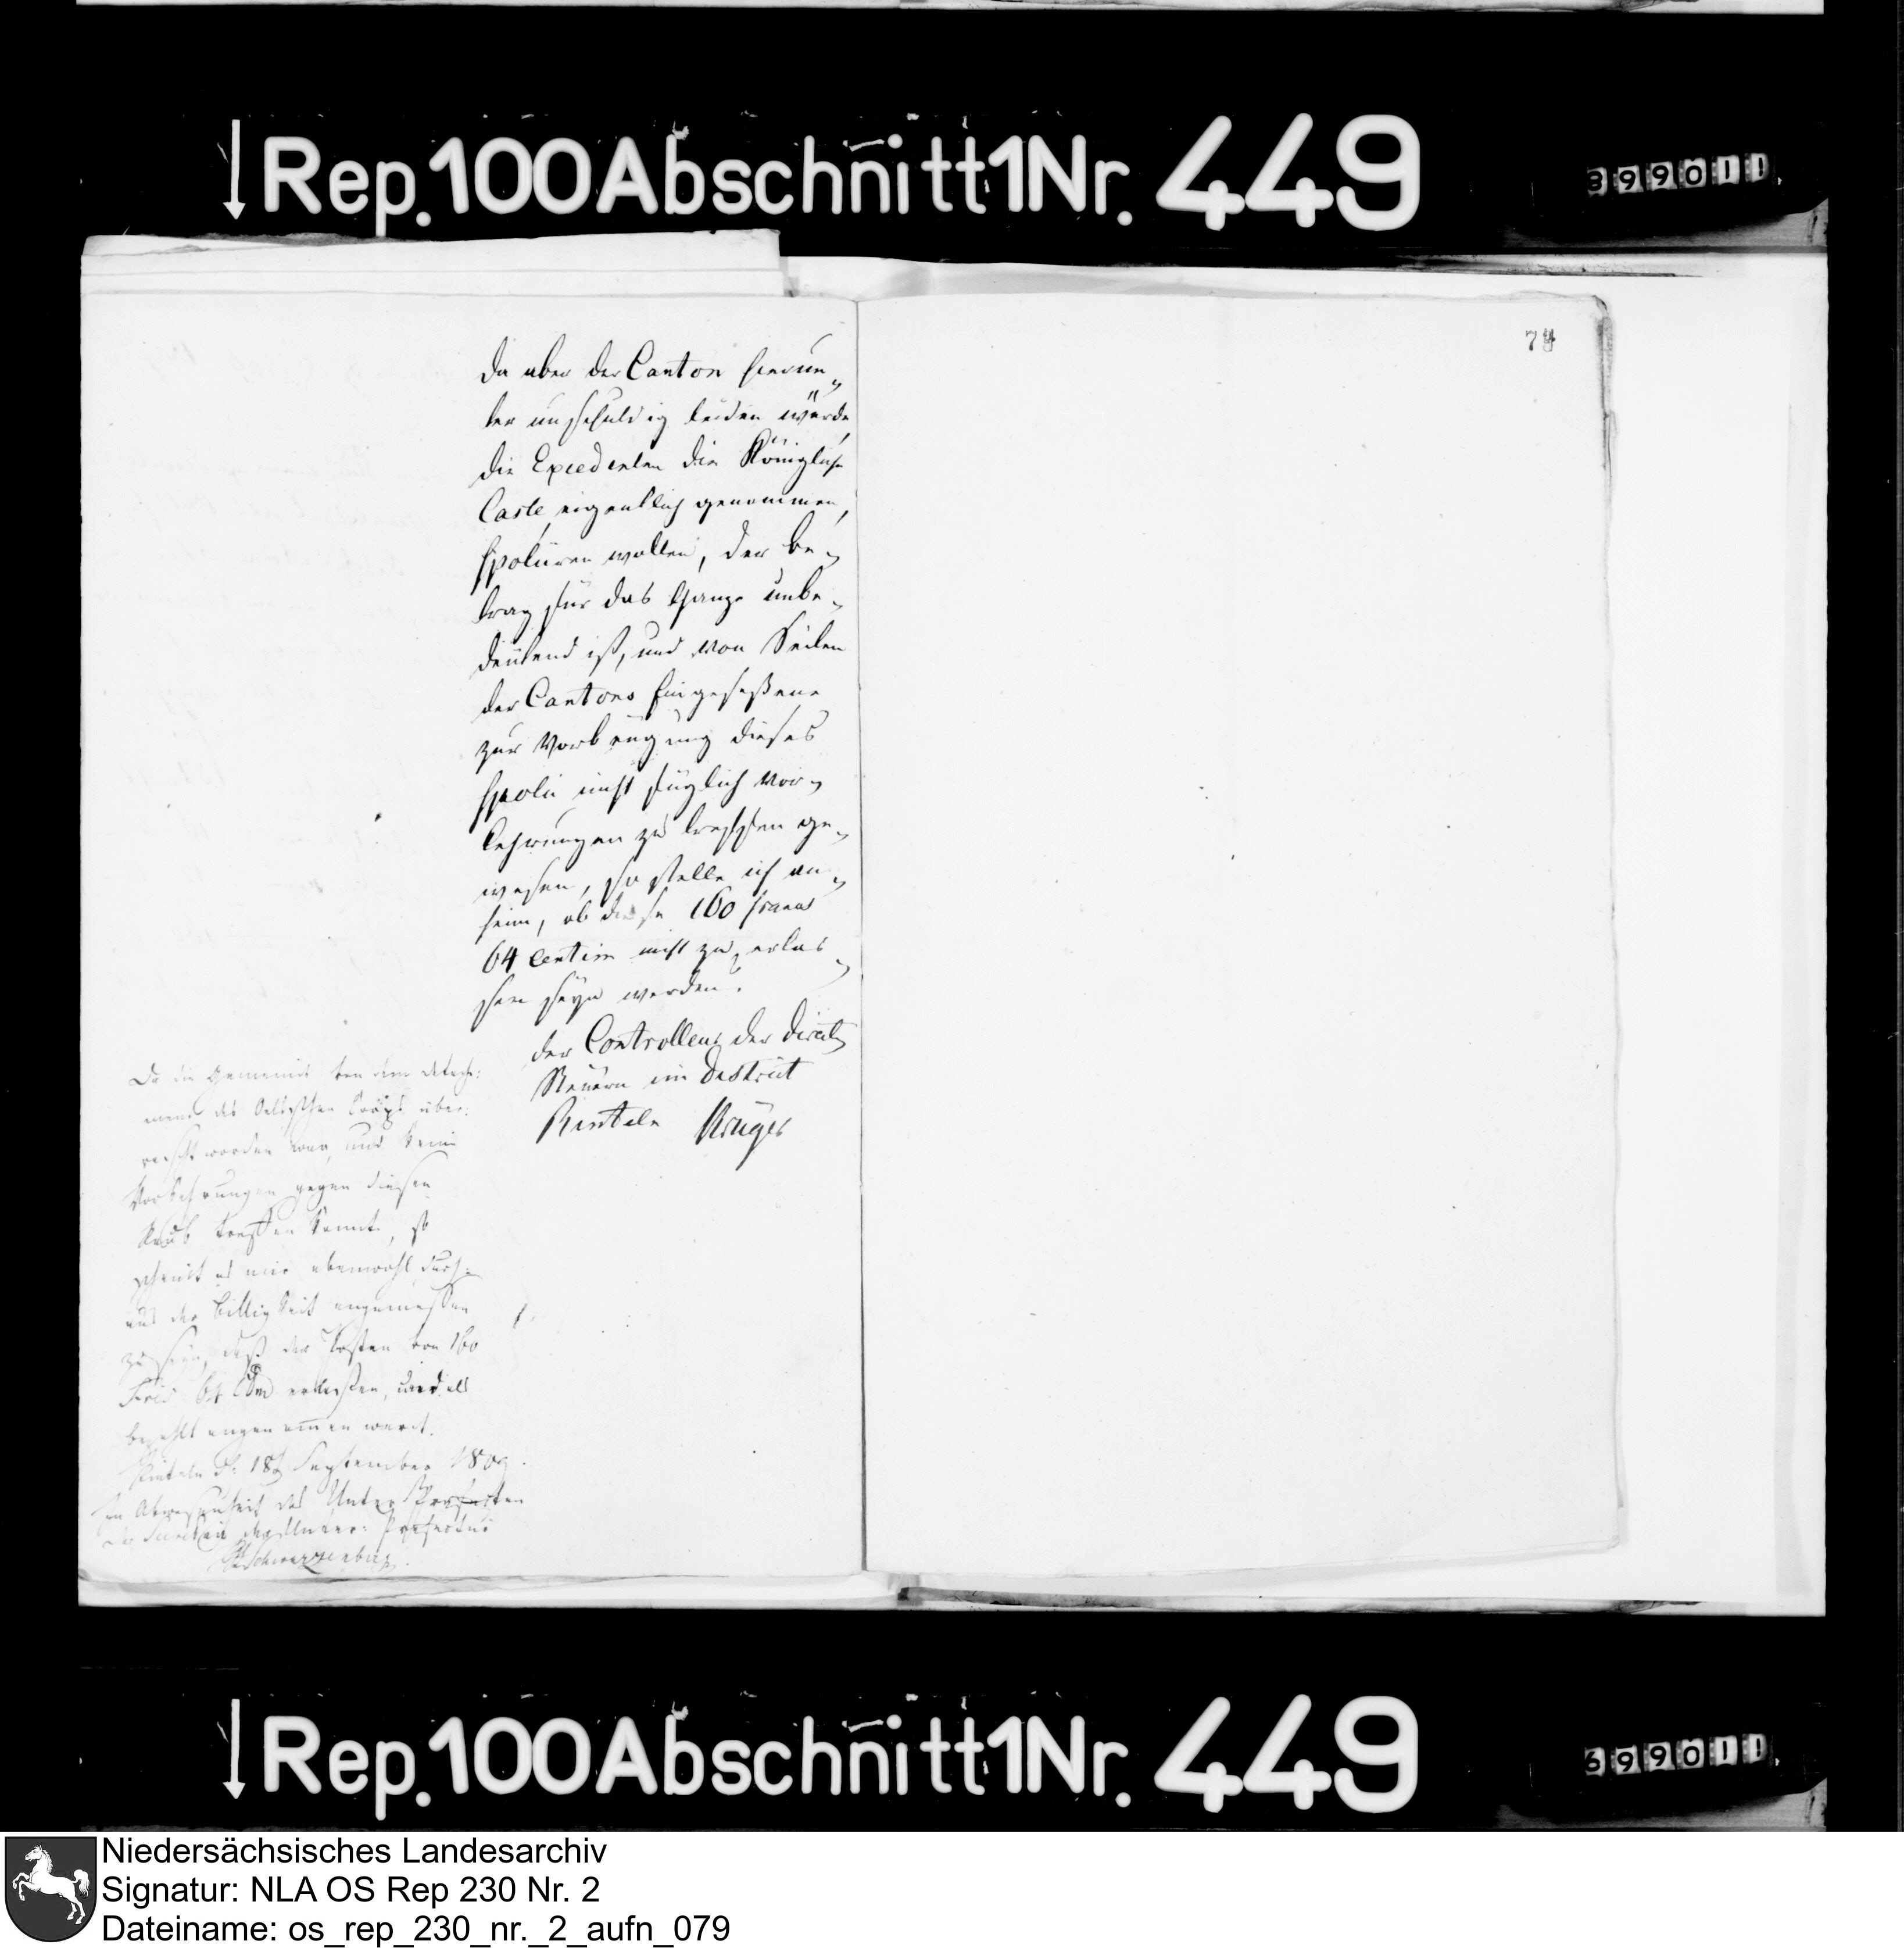 Rep.100Abschnitt1Nr.449
399011
74
Da aber der Canton hierun„
ter unschuldig leiden würde
die Expedienten die Königliche
Casse, eigentlich genommen,
spoliiren wollen, der Be„
trag für das Ganze unbe„
deutend ist, und von Seiten
der Cantons Eingeseßene
zur Vorbeugung dieses
Spolii nicht füglich Vor„
kehrungen zu treffen ge„
wesen, so stelle ich an„
heim, ob diese 160 francs
64 Centim nicht zu erlas„
sen seyn werden.
der Controlleur der Direct
Steuern im District
Rinteln Krüger
Da die Gemeinde von dem detache:
ment des Oelsschen Corps über:
rascht worden war, und keine
Vorkehrungen gegen diesen
Raub treffen konnte, so
scheint es mir ebenwohl durch:
aus der Billigkeit angemessen
zu seyn, daß der Posten von 160
Frcs 64 Ctm erlassen, und als
bezahlt angenommen werde.
Rinteln d. 18t September 1809.
In Abwesenheit des Unter Präfecten
Der Secretair der Unter: Präfectur
Schwarzenberg.
Rep.100Abschnitt1Nr.449
699011
Niedersächsisches Landesarchiv
Signatur: NLA OS Rep 230 Nr. 2
Dateiname: os_rep_230_nr._2_aufn_079